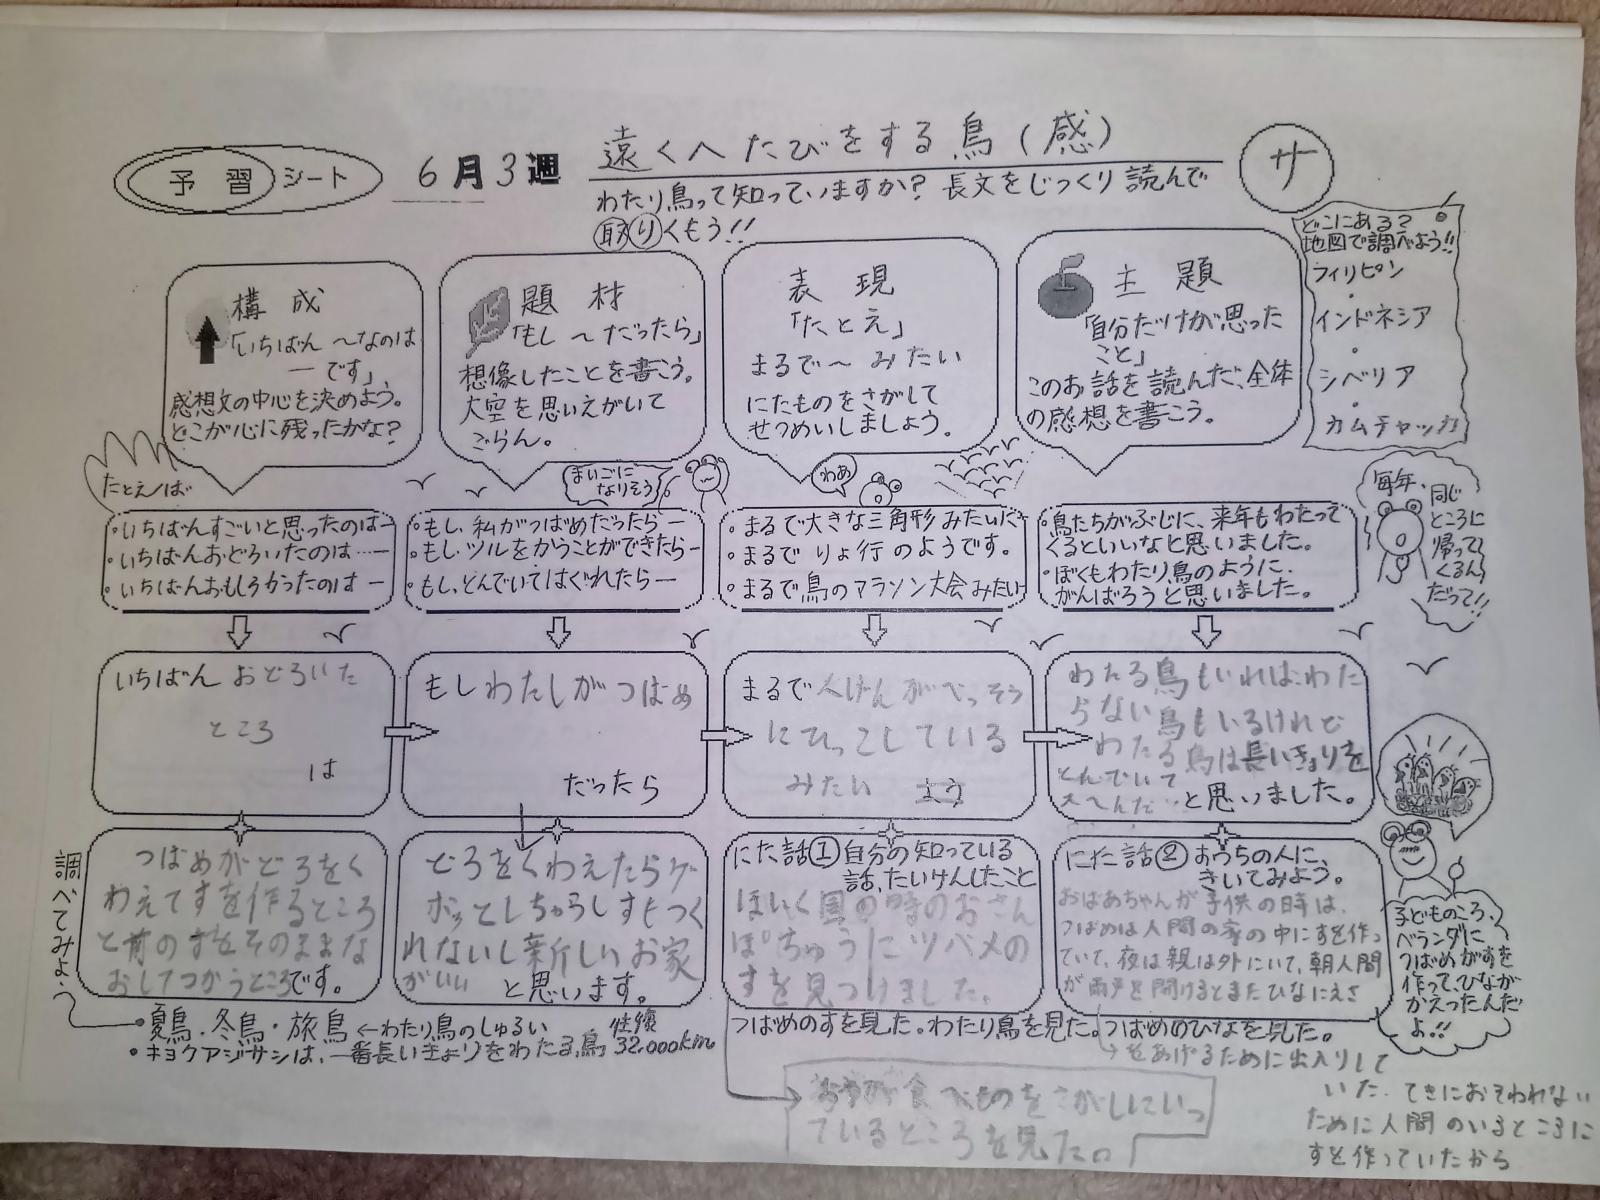 予習シート
6月3週
遠くへたびをする鳥(感)
サ
わたり鳥って知っていますか?長文をじっくり読んで
取りくもう!!
どこにある?
地図で調べよう!!
フィリピン
・
インドネシア
・
シベリア
・
カムチャッカ
構成
「いちばん〜なのは
―です」
感想文の中心を決めよう。
どこが心に残ったかな?
題材
「もし〜だったら」
想像したことを書こう。
大空を思いえがいて
ごらん。
表現
「たとえ」
まるで〜みたい
にたものをさがして
せつめいしましょう。
主題
「自分だけが思った
こと」
このお話を読んだ、全体
の感想を書こう。
たとえば
まいごに
なりそう
わあ
毎年、
同じ
ところに
帰って
くるん
だって!!
・いちばんすごいと思ったのは―
・いちばんおどろいたのは…―
・いちばんおもしろかったのは―
・もし、私がつばめだったら―
・もしツルをかうことができたら―
・もし、とんでいてはぐれたら―
・まるで大きな三角形みたいに
・まるでりょ行のようです。
・まるで鳥のマラソン大会みたい
・鳥たちがぶじに、来年もわたって
くるといいなと思いました。
・ぼくもわたり鳥のように、
がんばろうと思いました。
いちばんおどろいた
ところ
は
もしわたしがつばめ
だったら
まるで人げんがべっそう
にひっこしている
みたい よう
わたる鳥もいれば、わた
らない鳥もいるけれど
わたる鳥は長いきょりを
とんでいて
たいへんだ と思いました。
調べてみよ
つばめがどろをく
わえてすを作るところ
と前のすをそのままな
おしてつかうところです。
どろをくわえたらゲ
ボッとしちゃうしすもつく
れないし新しいお家
がいい と思います。
にた話① 自分の知っている
話、たいけんしたこと
ほいく園の時のおさん
ぽちゅうにツバメの
すを見つけました。
にた話② おうちの人に、
きいてみよう。
おばあちゃんが子供の時は、
つばめは人間の家の中にすを作っ
ていて、夜は親は外にいて、朝人間
が雨戸を開けるとまたひなにえさ
をあげるために出入りして
いた。てきにおそわれない
ために人間のいるところに
すを作っていたから
子どものころ、
ベランダに
つばめがすを
作って、ひなが
かえったんだ
よ!!
・夏鳥・冬鳥・旅鳥←わたり鳥のしゅるい
・キョクアジサシは、一番長いきょりをわたる鳥 往復 32,000km
つばめのすを見た。わたり鳥を見た。つばめのひなを見た。
食べものをさがしにいっ
ているところを見た。